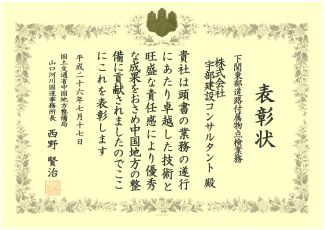 表彰状
下関東部道路付属物点検業務
株式会社
宇部建設コンサルタント 殿
貴社は頭書の業務の遂行
にあたり卓越した技術と
旺盛な責任感により優秀
な成果をおさめ中国地方の整
備に貢献されましたのでここ
にこれを表彰します
平成二十六年七月十七日
国土交通省中国地方整備局
山口河川国道事務所長 西野 賢治